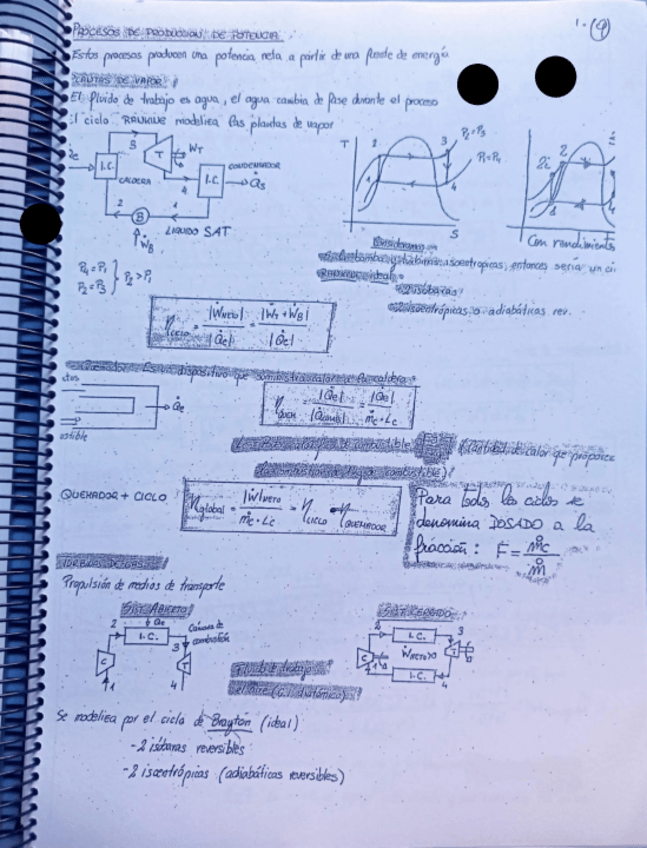 1-(9)
PROCESOS DE PRODUCCION DE POTENCIA
Estos procesos producen una potencia neta a partir de una fuente de energía
PLANTAS DE VAPOR
El fluido de trabajo es agua, el agua cambia de fase durante el proceso
El ciclo RANKINE modeliza las plantas de vapor
3
T
WT
I.C.
CALDERA
4
I.C.
CONDENSADOR
Q̇s
2
B
1
ẆB
LIQUIDO SAT
T
2
3
P2=P3
P1=P4
1
4
S
2i
2
1
Con rendimientos
P4=P1
P2=P3
P2>P1
Consideramos
isoentropicas, entonces sería un ci
RANKINE ideal
2 isóbaras
2 isoentrópicas o adiabáticas rev.
ηciclo = |ẆNETO| / |Q̇c| = |ẆT+ẆB| / |Q̇c|
Quemador: Es un dispositivo que suministra calor a la caldera
Q̇c
ηQUEM = |Q̇c| / |Q̇comb| = |Q̇c| / ṁc·Lc
(Cantidad de calor que proporciona
combustible)
QUEMADOR + CICLO
ηglobal = |Ẇ|NETO / ṁc·Lc = ηCICLO · ηQUEMADOR
Para todos los ciclos se
denomina DOSADO a la
fracción: F = ṁc / ṁ
TURBINAS DE GAS
Propulsión de medios de transporte
SIST. ABIERTO
SIST. CERRADO
2
Q̇c
I.C.
3
Cámara de
combustión
C
T
1
4
2
I.C.
3
C
ẆNETO>0
T
1
I.C.
4
Fluido de trabajo
el aire (G.I. diatómico)
Se modeliza por el ciclo de Brayton (ideal)
-2 isóbaras reversibles
-2 isoentrópicas (adiabáticas reversibles)